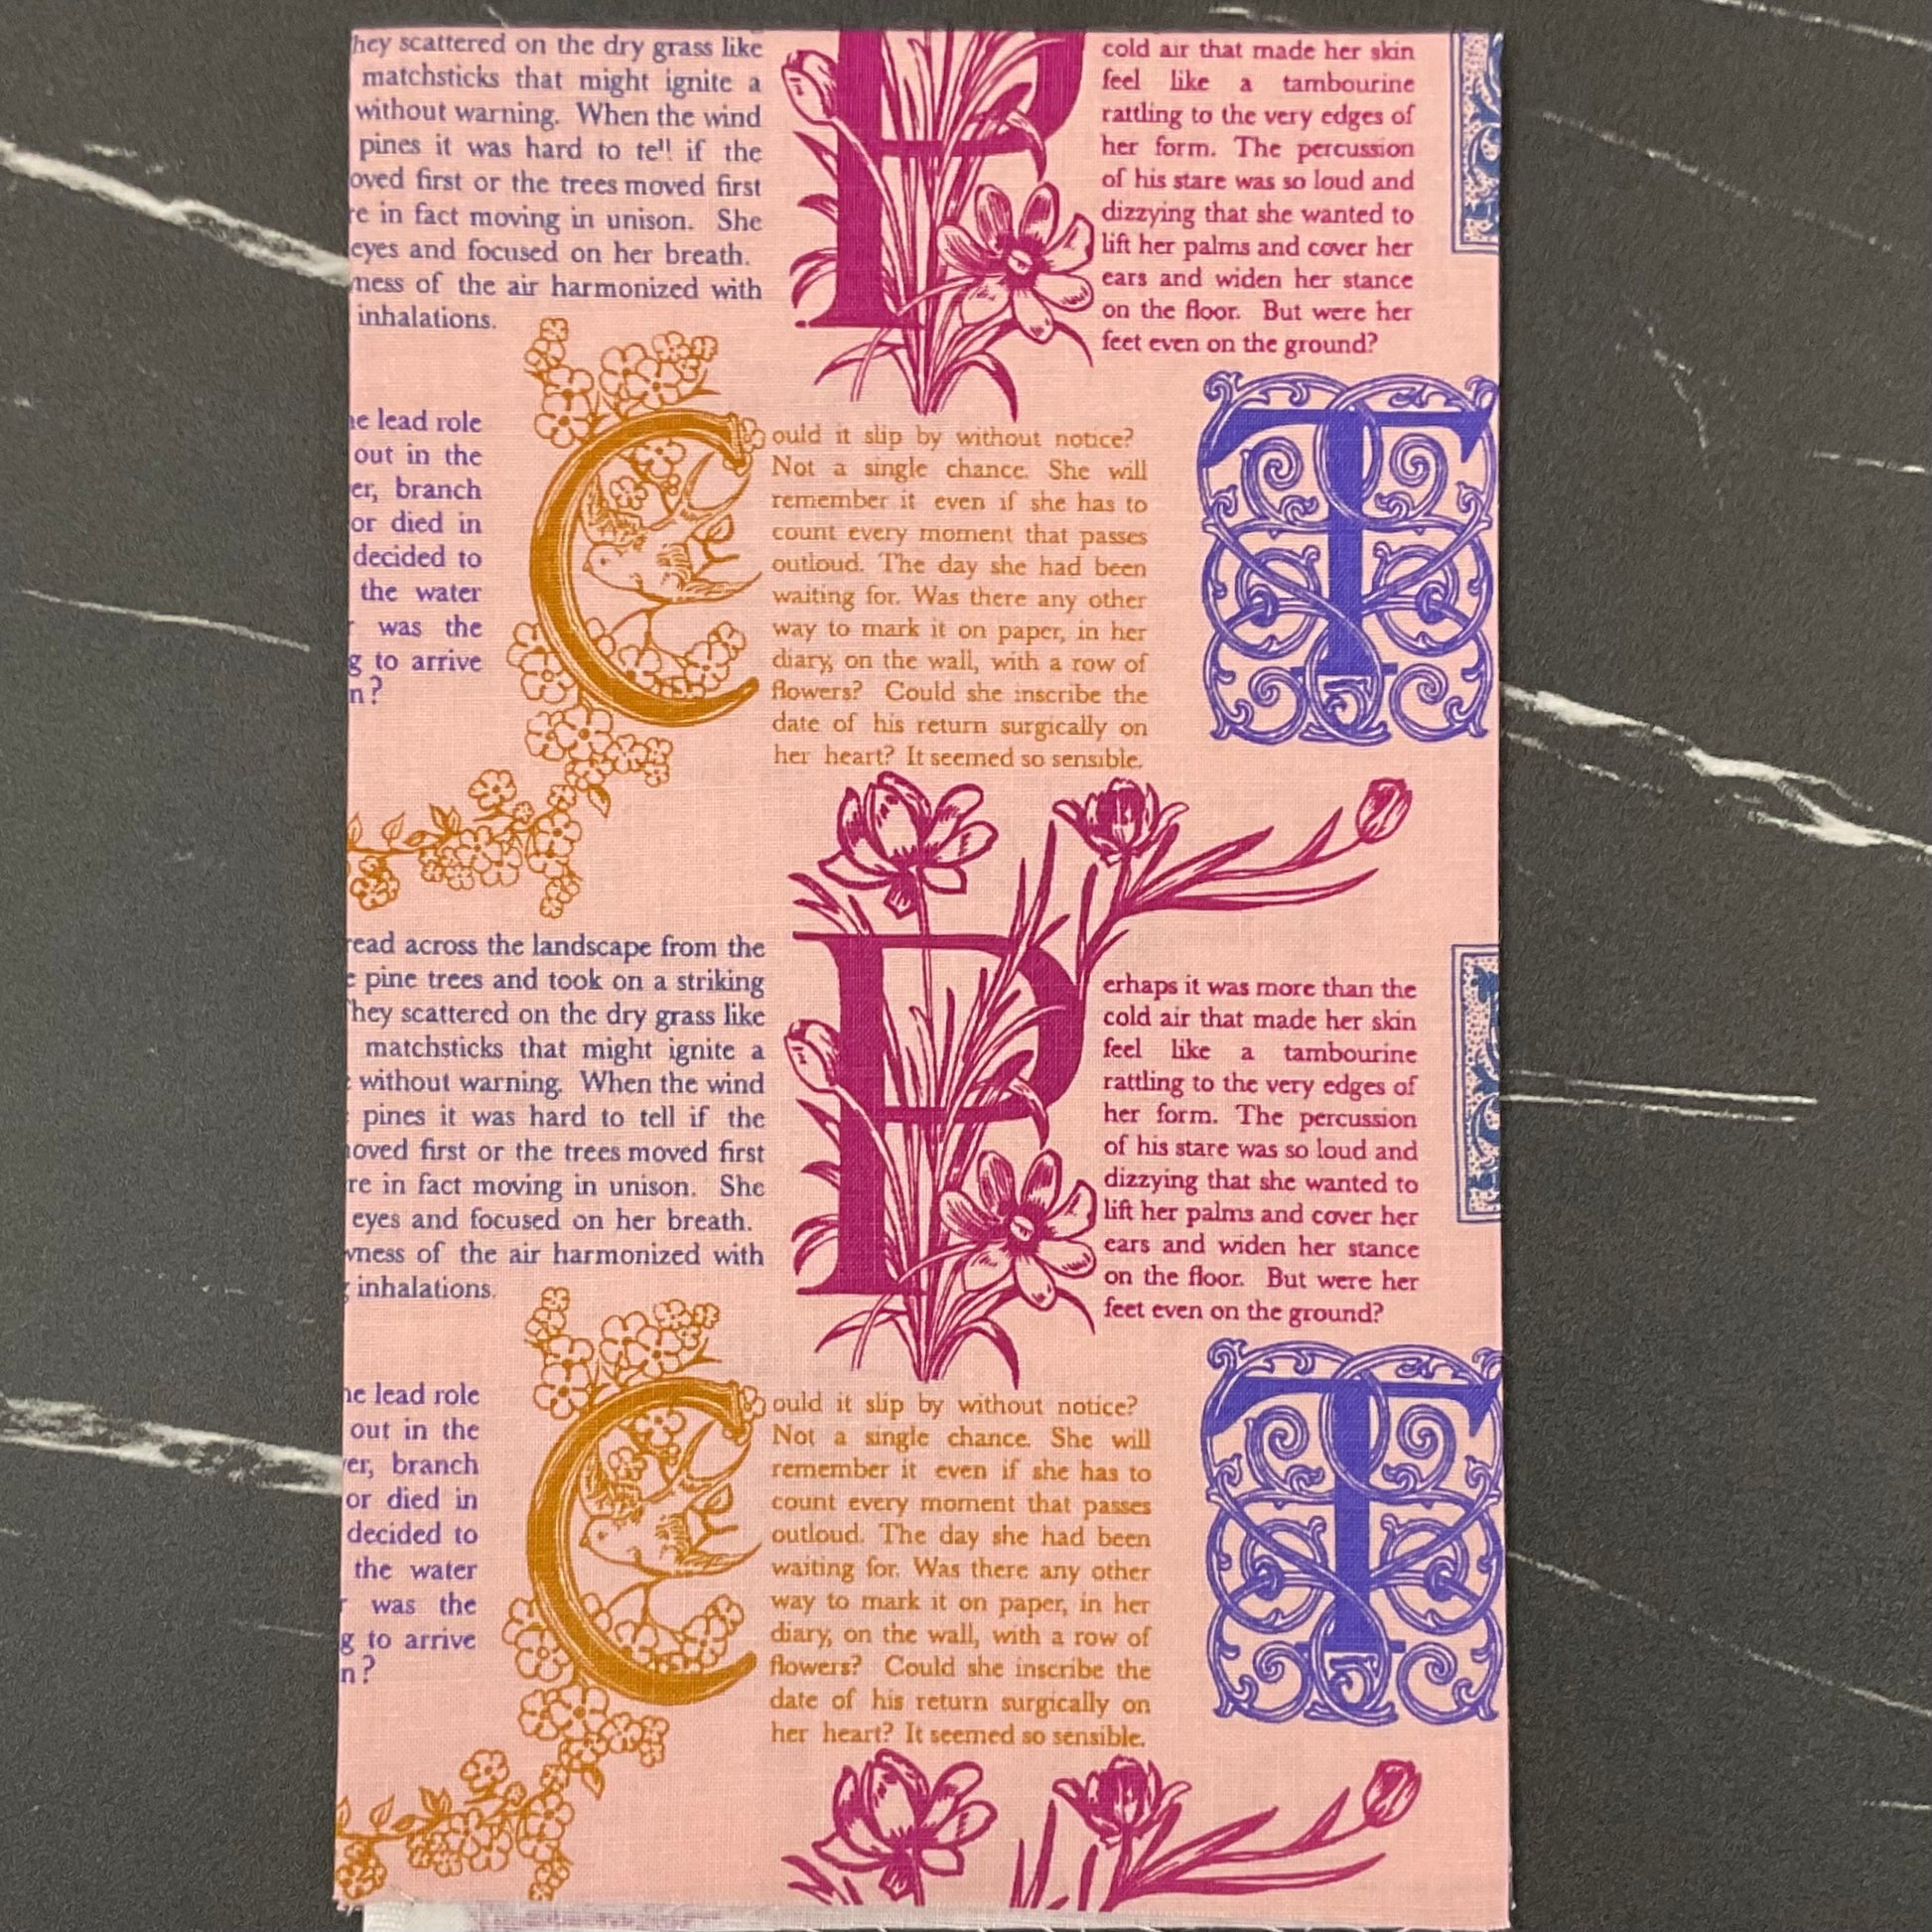 hey scattered on the dry grass like
matchsticks that might ignite a
without warning. When the wind
pines it was hard to tell if the
oved first or the trees moved first
re in fact moving in unison. She
eyes and focused on her breath.
ness of the air harmonized with
inhalations.
P
cold air that made her skin
feel like a tambourine
rattling to the very edges of
her form. The percussion
of his stare was so loud and
dizzying that she wanted to
lift her palms and cover her
ears and widen her stance
on the floor. But were her
feet even on the ground?
he lead role
out in the
er, branch
or died in
decided to
the water
was the
g to arrive
n?
C
ould it slip by without notice?
Not a single chance. She will
remember it even if she has to
count every moment that passes
outloud. The day she had been
waiting for. Was there any other
way to mark it on paper, in her
diary, on the wall, with a row of
flowers? Could she inscribe the
date of his return surgically on
her heart? It seemed so sensible.
T
read across the landscape from the
pine trees and took on a striking
They scattered on the dry grass like
matchsticks that might ignite a
without warning. When the wind
pines it was hard to tell if the
oved first or the trees moved first
re in fact moving in unison. She
eyes and focused on her breath.
ness of the air harmonized with
inhalations.
P
erhaps it was more than the
cold air that made her skin
feel like a tambourine
rattling to the very edges of
her form. The percussion
of his stare was so loud and
dizzying that she wanted to
lift her palms and cover her
ears and widen her stance
on the floor. But were her
feet even on the ground?
he lead role
out in the
er, branch
or died in
decided to
the water
was the
g to arrive
n?
C
ould it slip by without notice?
Not a single chance. She will
remember it even if she has to
count every moment that passes
outloud. The day she had been
waiting for. Was there any other
way to mark it on paper, in her
diary, on the wall, with a row of
flowers? Could she inscribe the
date of his return surgically on
her heart? It seemed so sensible.
T